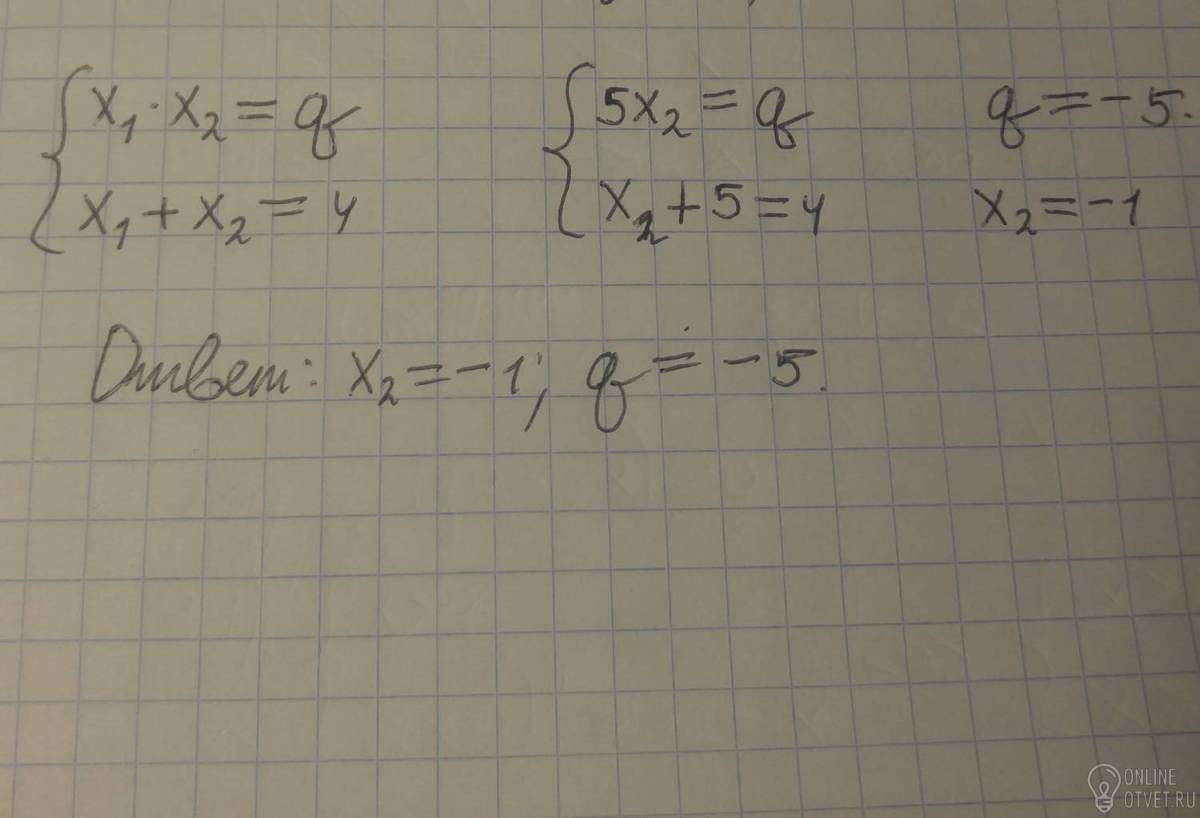 x₁·x₂=q 5x₂=q q=-5.
x₁+x₂=4 x₂+5=4 x₂=-1
Ответ: x₂=-1; q=-5.
ONLINE
OTVET.RU